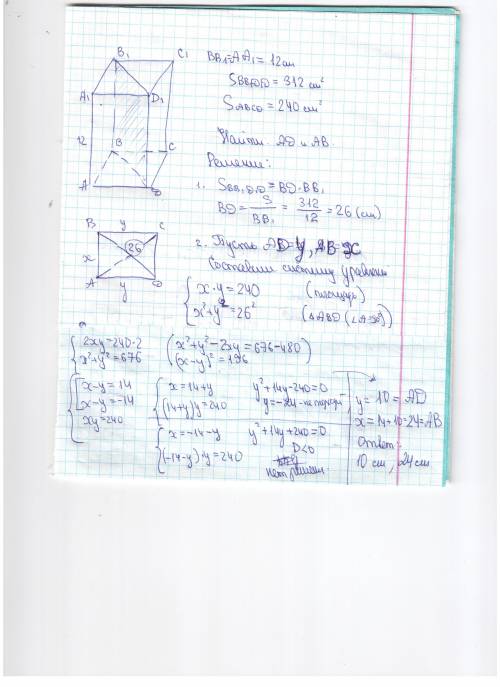 B₁ C₁ BB₁=AA₁=12см
S BB₁D₁D=312 см²
A₁ D₁ S ABCD=240 см²
12 B C Найти: AD и AB.
A D Решение:
1. S BB₁D₁D=BD·BB₁
BD=S/BB₁=312/12=26 (см)
B y C
26
x
A y D
2. Пусть AD=y, AB=x
Составим систему уравнен
{ x·y=240 (площадь)
x²+y²=26² (△ABD (∠A=90°))
{ 2xy=240·2
x²+y²=676
( x²+y²-2xy=676-480
(x-y)²=196 )
{ [ x-y=14
x-y=-14
xy=240
{ x=14+y y²+14y-240=0
(14+y)y=240 y=-24-не подход
{ x=-14-y y²+14y+240=0
D<0
(-14-y)y=240
нет решен
y=10=AD
x=14+10=24=AB
Ответ:
10 см, 24 см